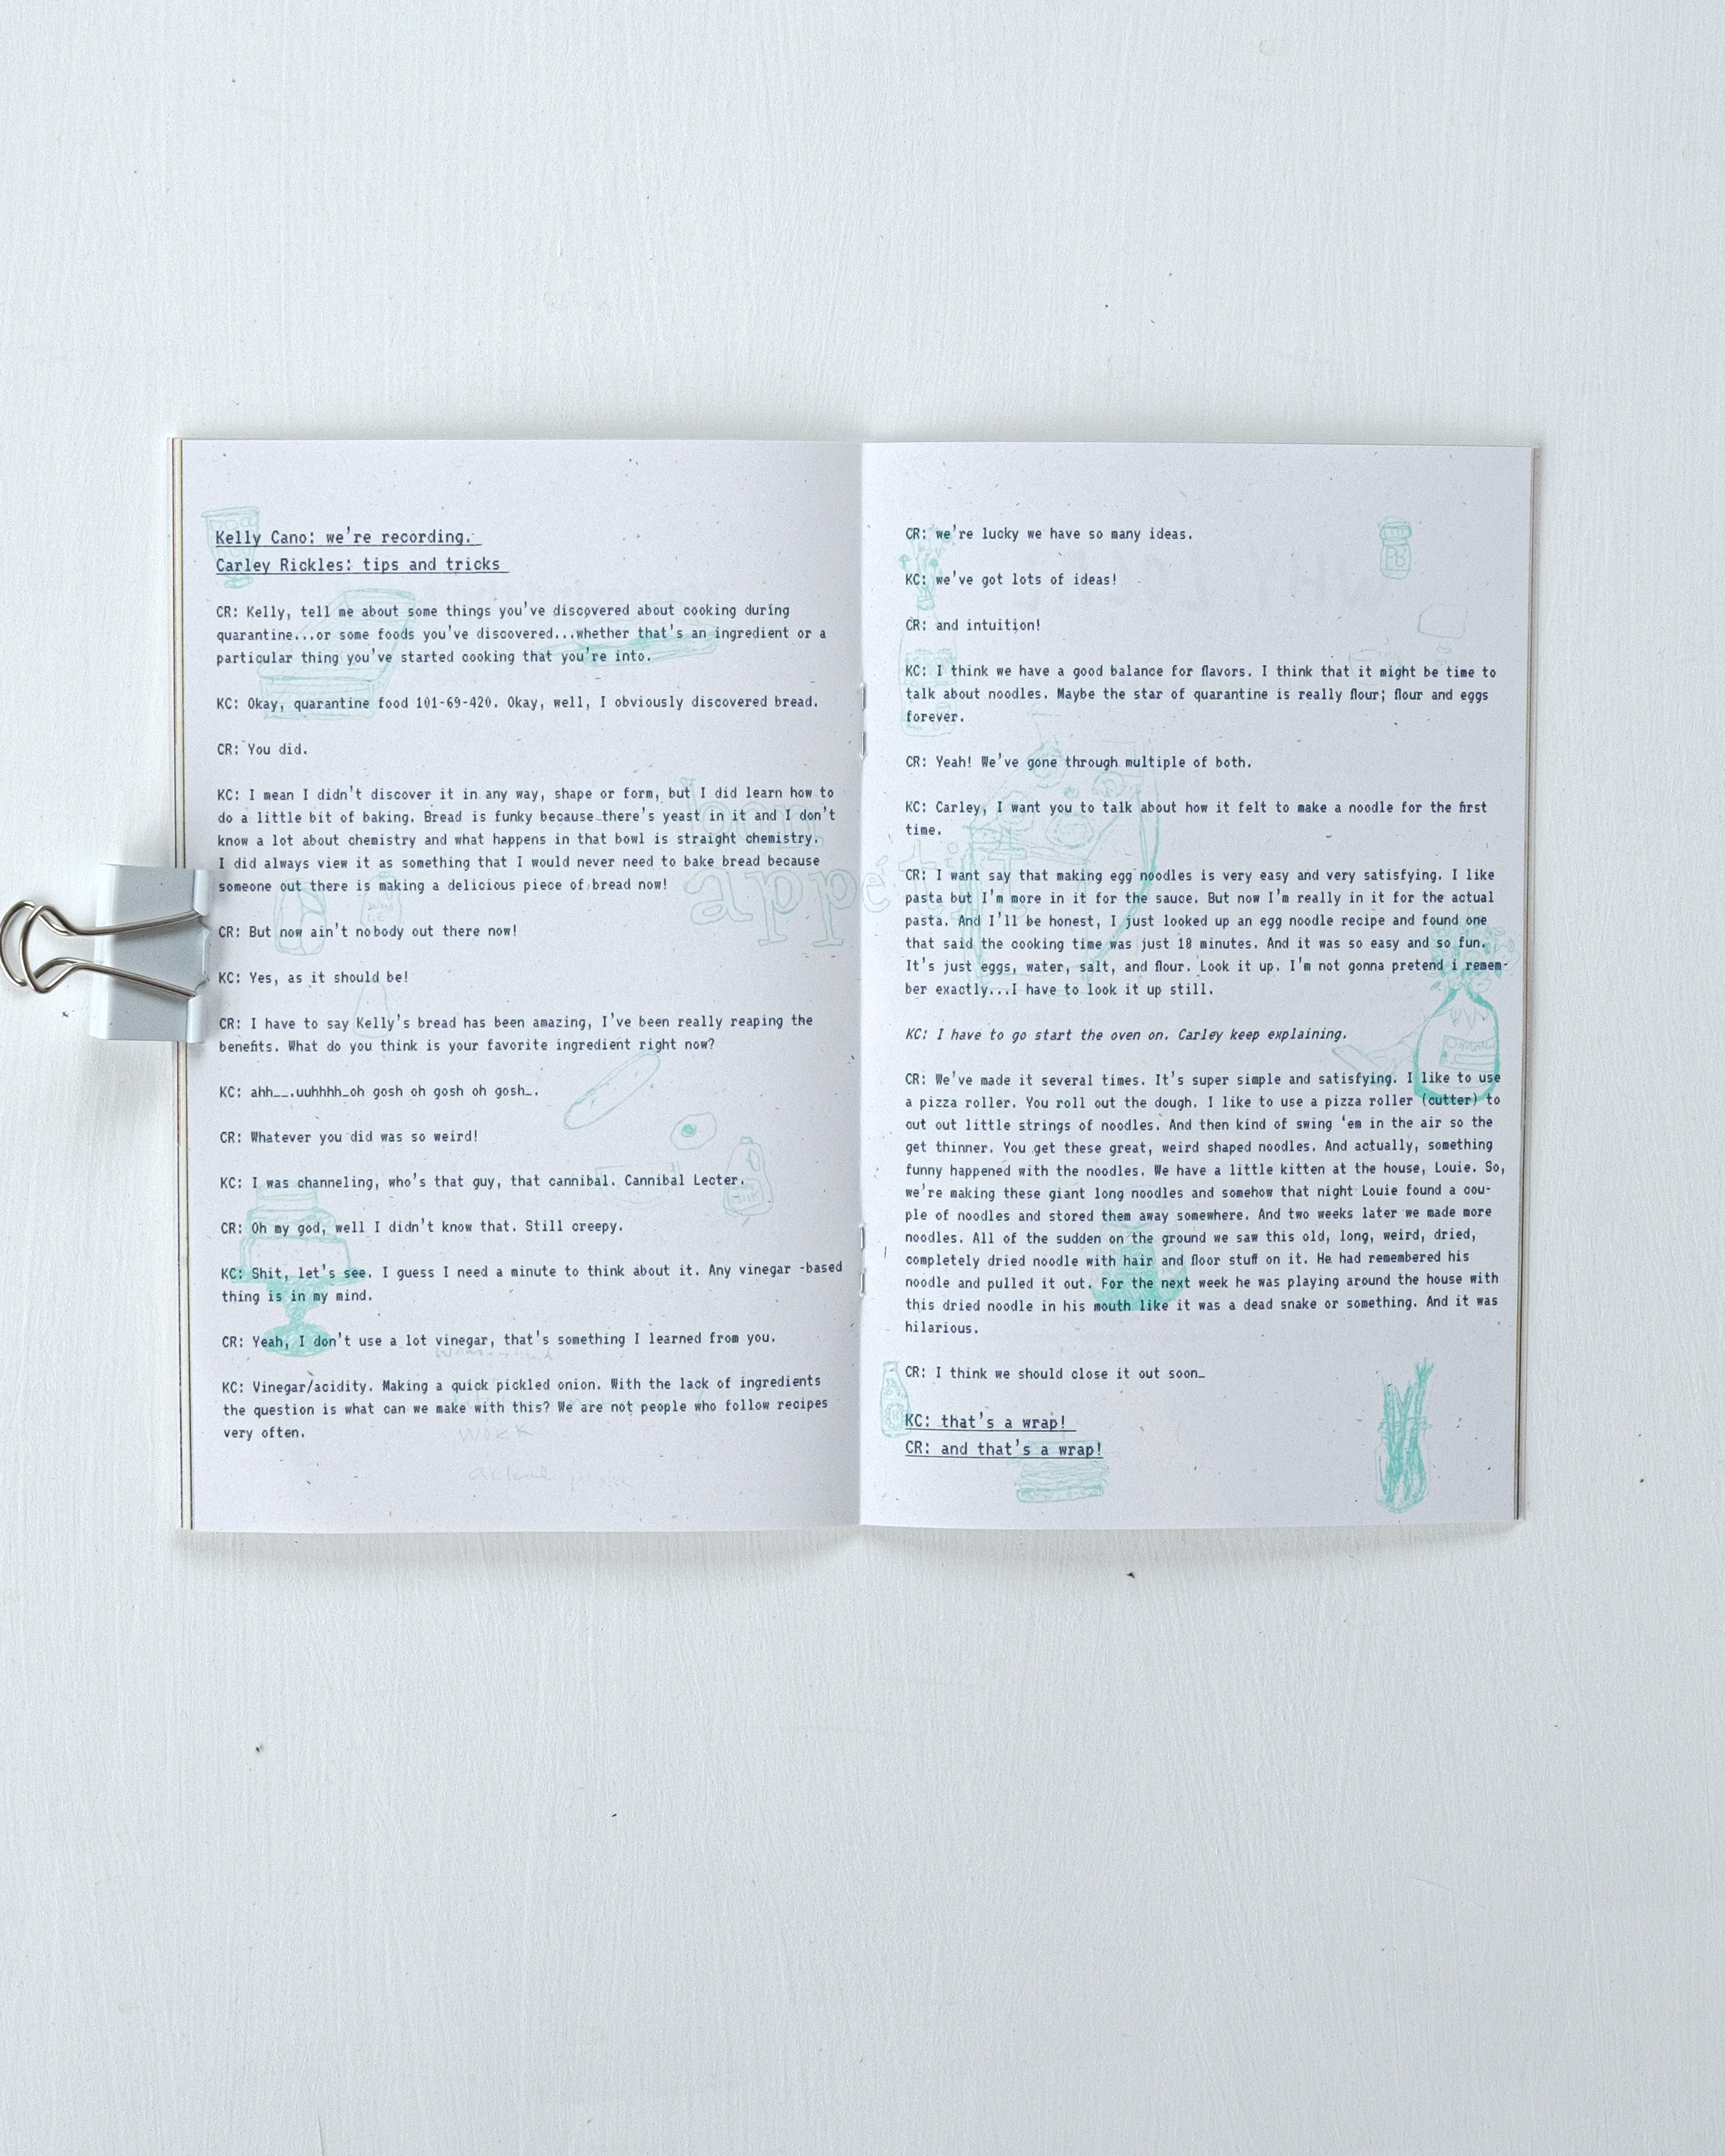 Kelly Cano: we're recording.
Carley Rickles: tips and tricks
CR: Kelly, tell me about some things you've discovered about cooking during
quarantine...or some foods you've discovered...whether that's an ingredient or a
particular thing you've started cooking that you're into.
KC: Okay, quarantine food 101-69-420. Okay, well, I obviously discovered bread.
CR: You did.
KC: I mean I didn't discover it in any way, shape or form, but I did learn how to
do a little bit of baking. Bread is funky because there's yeast in it and I don't
know a lot about chemistry and what happens in that bowl is straight chemistry.
I did always view it as something that I would never need to bake bread because
someone out there is making a delicious piece of bread now!
CR: But now ain't nobody out there now!
KC: Yes, as it should be!
CR: I have to say Kelly's bread has been amazing, I've been really reaping the
benefits. What do you think is your favorite ingredient right now?
KC: ahh__.uuhhhh_oh gosh oh gosh oh gosh_.
CR: Whatever you did was so weird!
KC: I was channeling, who's that guy, that cannibal. Cannibal Lecter.
CR: Oh my god, well I didn't know that. Still creepy.
KC: Shit, let's see. I guess I need a minute to think about it. Any vinegar -based
thing is in my mind.
CR: Yeah, I don't use a lot vinegar, that's something I learned from you.
KC: Vinegar/acidity. Making a quick pickled onion. With the lack of ingredients
the question is what can we make with this? We are not people who follow recipes
very often.
work
bon
appétit
CR: we're lucky we have so many ideas.
KC: we've got lots of ideas!
CR: and intuition!
KC: I think we have a good balance for flavors. I think that it might be time to
talk about noodles. Maybe the star of quarantine is really flour; flour and eggs
forever.
CR: Yeah! We've gone through multiple of both.
KC: Carley, I want you to talk about how it felt to make a noodle for the first
time.
CR: I want say that making egg noodles is very easy and very satisfying. I like
pasta but I'm more in it for the sauce. But now I'm really in it for the actual
pasta. And I'll be honest, I just looked up an egg noodle recipe and found one
that said the cooking time was just 18 minutes. And it was so easy and so fun.
It's just eggs, water, salt, and flour. Look it up. I'm not gonna pretend i remem-
ber exactly...I have to look it up still.
KC: I have to go start the oven on. Carley keep explaining.
CR: We've made it several times. It's super simple and satisfying. I like to use
a pizza roller. You roll out the dough. I like to use a pizza roller (cutter) to
cut out little strings of noodles. And then kind of swing 'em in the air so the
get thinner. You get these great, weird shaped noodles. And actually, something
funny happened with the noodles. We have a little kitten at the house, Louie. So,
we're making these giant long noodles and somehow that night Louie found a cou-
ple of noodles and stored them away somewhere. And two weeks later we made more
noodles. All of the sudden on the ground we saw this old, long, weird, dried,
completely dried noodle with hair and floor stuff on it. He had remembered his
noodle and pulled it out. For the next week he was playing around the house with
this dried noodle in his mouth like it was a dead snake or something. And it was
hilarious.
CR: I think we should close it out soon_
KC: that's a wrap!
CR: and that's a wrap!
PB